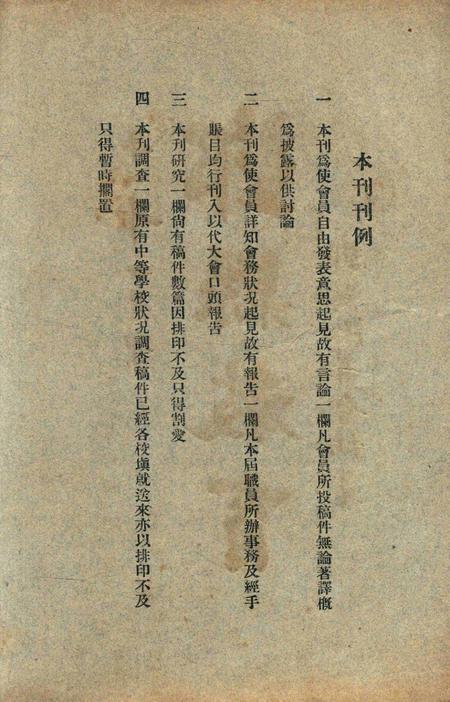 本刊刊例
一　本刊爲使會員自由發表意思起見故有言論一欄凡會員所投稿件無論著譯概
爲披露以供討論
二　本刊爲使會員詳知會務狀况起見故有報告一欄凡本屆職員所辦事務及經手
賬目均行刊入以代大會口頭報告
三　本刊研究一欄尙有稿件數篇因排印不及只得割愛
四　本刋調查一欄原有中等學校狀况調查稿件已經各校塡就送來亦以排印不及
只得暫時擱置